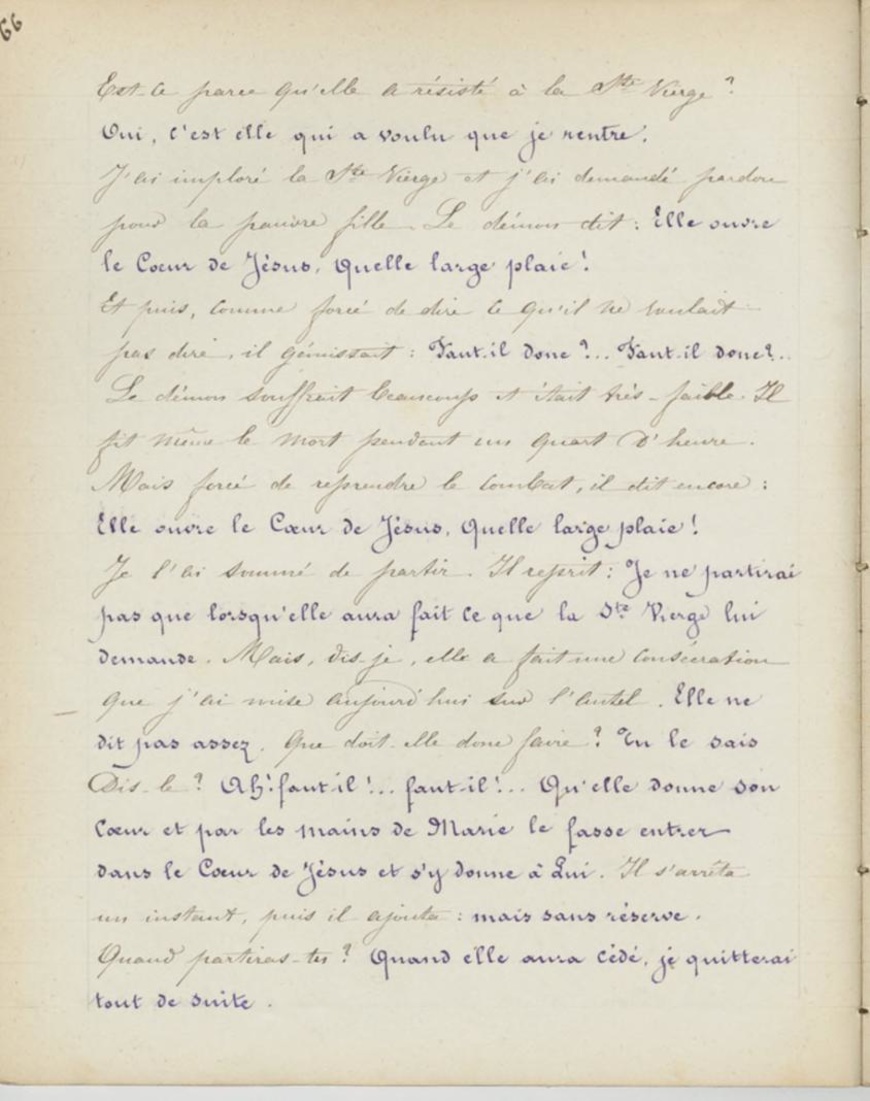 66
Est-ce parce qu'elle a résisté à la Ste Vierge ?
Oui, c'est elle qui a voulu que je rentre.
J'ai imploré la Ste Vierge et j'ai demandé pardon
pour la pauvre fille. Le démon dit : Elle ouvre
le Cœur de Jésus, quelle large plaie !
Et puis, comme forcé de dire ce qu'il ne voulait
pas dire, il gémissait : Faut-il donc ?.. Faut-il donc ?..
Le démon souffrait beaucoup et était très-faible. Il
fit même le mort pendant un quart d'heure.
Mais forcé de reprendre le combat, il dit encore :
Elle ouvre le Cœur de Jésus, quelle large plaie !
Je l'ai sommé de partir. Il reprit : Je ne partirai
pas que lorsqu'elle aura fait ce que la Ste Vierge lui
demande. Mais, dis-je, elle a fait une consécration
que j'ai mise aujourd'hui sur l'autel. Elle ne
dit pas assez. Que doit-elle donc faire ? Tu le sais
Dis-le ? Ah ! faut-il !.. faut-il !.. Qu'elle donne son
Cœur et par les mains de Marie le fasse entrer
dans le Cœur de Jésus et s'y donne à Lui. Il s'arrêta
un instant, puis il ajouta : mais sans réserve.
Quand partiras-tu ? Quand elle aura cédé, je quitterai
tout de suite.